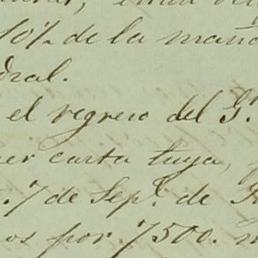 10% de la maña
dral.
el regreso del G.
er carta tuya,
7 de Sep.e de
os por 7500.